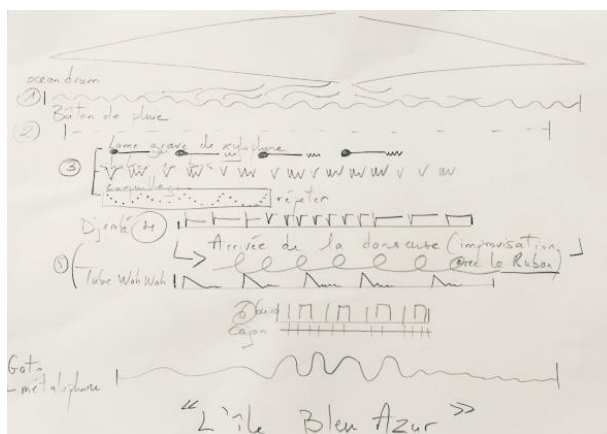 ocean drum
1
Bâton de pluie
2
Lame grave de xylophone
3
coquillages
répéter
Djembé 4
Arrivée de la danseuse (improvisation
avec le Ruban)
5
Tube Wah Wah
6
Cajon
Gato
métalophone
"L'île Bleu Azur"